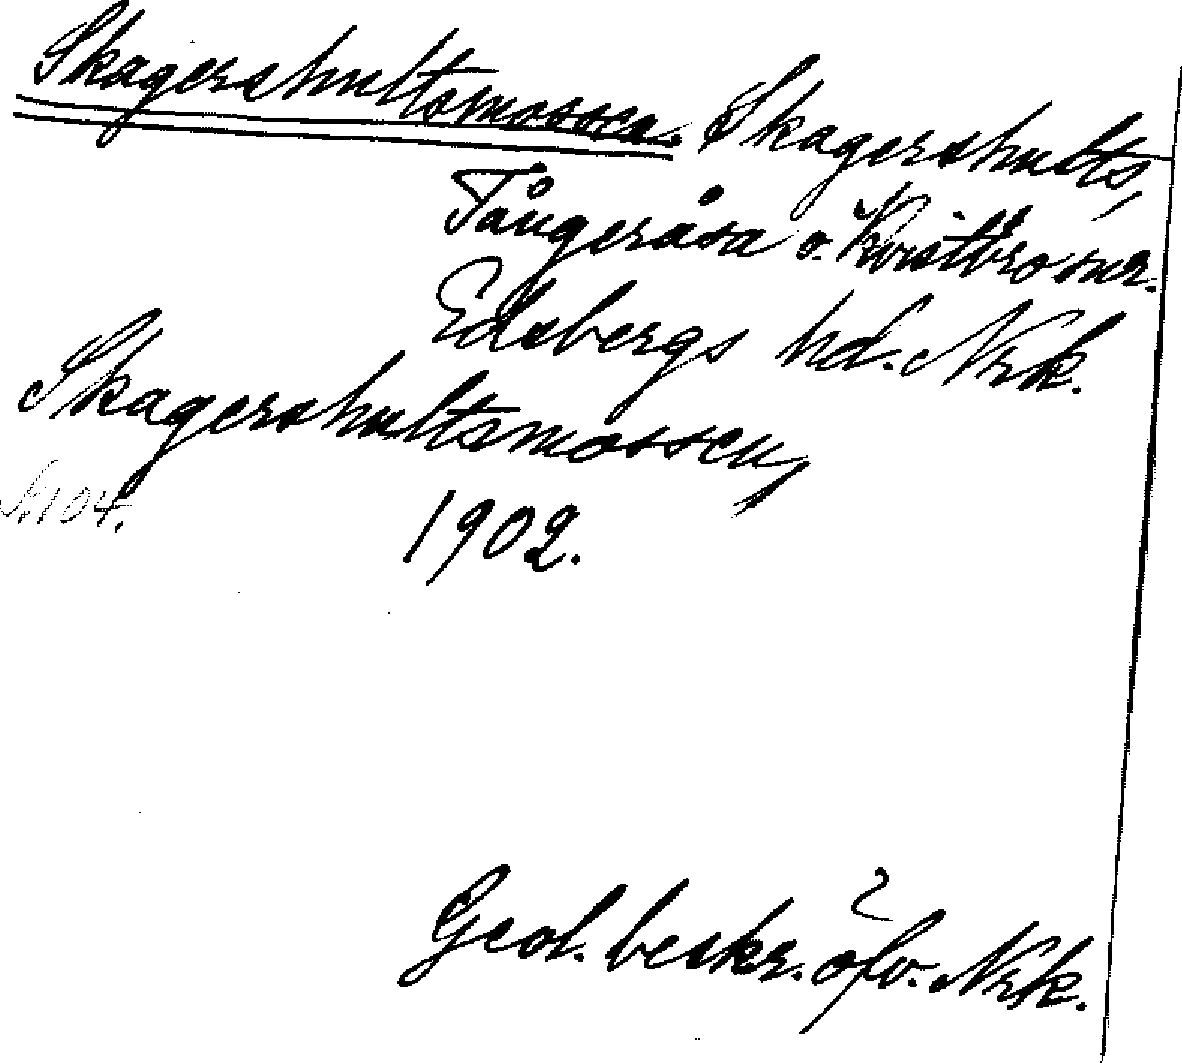 Skagershultsmossen. Skagershults,
Tångeråsa o. Kvistbro snr.
Edsbergs hd. Nrk.
Skagershultsmossen,
1902.
Geol. beskr. öfv. Nrk.